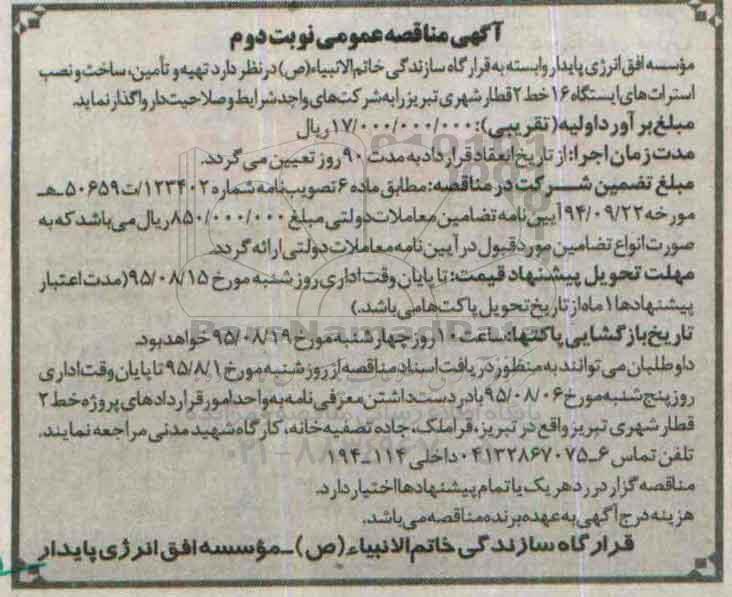 آگهی مناقصه عمومی نوبت دوم
مؤسسه افق انرژی پایدار وابسته به قرارگاه سازندگی خاتم الانبیاء (ص) در نظر دارد تهیه و تأمین، ساخت و نصب
استرات های ایستگاه ۱۶ خط ۲ قطار شهری تبریز را به شرکت های واجد شرایط و صلاحیت دار واگذار نماید.
مبلغ برآورد اولیه (تقریبی): ۱۷/۰۰۰/۰۰۰/۰۰۰ ریال
مدت زمان اجرا: از تاریخ انعقاد قرارداد به مدت ۹۰ روز تعیین می گردد.
مبلغ تضمین شرکت در مناقصه: مطابق ماده ۶ تصویب نامه شماره ۱۲۳۴۰۲/ت۵۰۶۵۹ـهـ
مورخه ۹۴/۰۹/۲۲ آیین نامه تضامین معاملات دولتی مبلغ ۸۵۰/۰۰۰/۰۰۰ ریال می باشد که به
صورت انواع تضامین مورد قبول در آیین نامه معاملات دولتی ارائه گردد.
مهلت تحویل پیشنهاد قیمت: تا پایان وقت اداری روز شنبه مورخ ۹۵/۰۸/۱۵ (مدت اعتبار
پیشنهادها ۱ ماه از تاریخ تحویل پاکت ها می باشد.)
تاریخ بازگشایی پاکتها: ساعت ۱۰ روز چهارشنبه مورخ ۹۵/۰۸/۱۹ خواهد بود.
داوطلبان می توانند به منظور دریافت اسناد مناقصه از روز شنبه مورخ ۹۵/۸/۱ تا پایان وقت اداری
روز پنج شنبه مورخ ۹۵/۰۸/۰۶ با در دست داشتن معرفی نامه به واحد امور قراردادهای پروژه خط ۲
قطار شهری تبریز واقع در تبریز، قراملک، جاده تصفیه خانه، کارگاه شهید مدنی مراجعه نمایند.
تلفن تماس ۶ـ۰۴۱۳۲۸۶۷۰۷۵ داخلی ۱۱۴ـ۱۹۴
مناقصه گزار در رد هر یک یا تمام پیشنهادها اختیار دارد.
هزینه درج آگهی به عهده برنده مناقصه می باشد.
قرارگاه سازندگی خاتم الانبیاء (ص) ـ مؤسسه افق انرژی پایدار
ParsNamadData